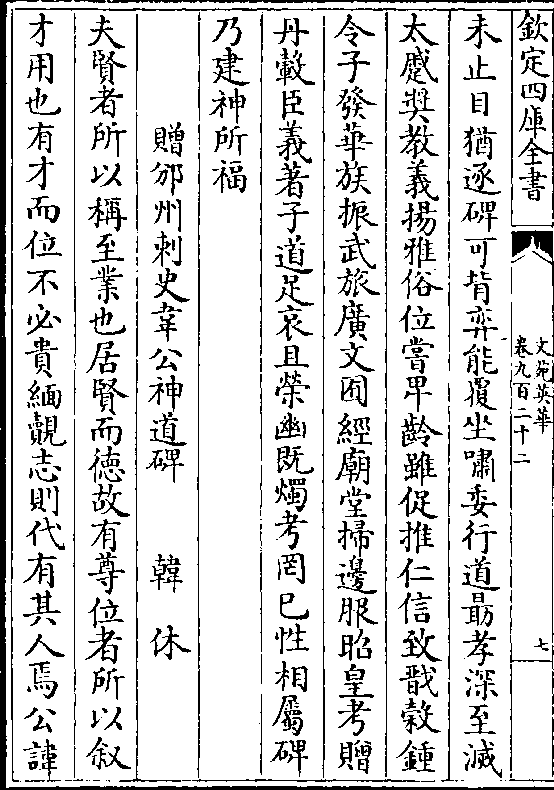 欽定四庫全書
文苑英華
卷九百二十二
七
未止目猶逐碑可背弈能覆坐嘯委行道最孝深至滅
太感奬教義揚雅俗位嘗卑齡雖促推仁信致戩穀鍾
令子發華族振武旅廣文囿經廟堂掃邊服昭皇考贈
丹轂臣義著子道足哀且榮幽既燭考罔已性相屬碑
乃建神所福
贈邠州刺史韋公神道碑 韓休
夫賢者所以稱至業也居賢而徳故有尊位者所以叙
才用也有才而位不必貴緬覿志則代有其人焉公諱